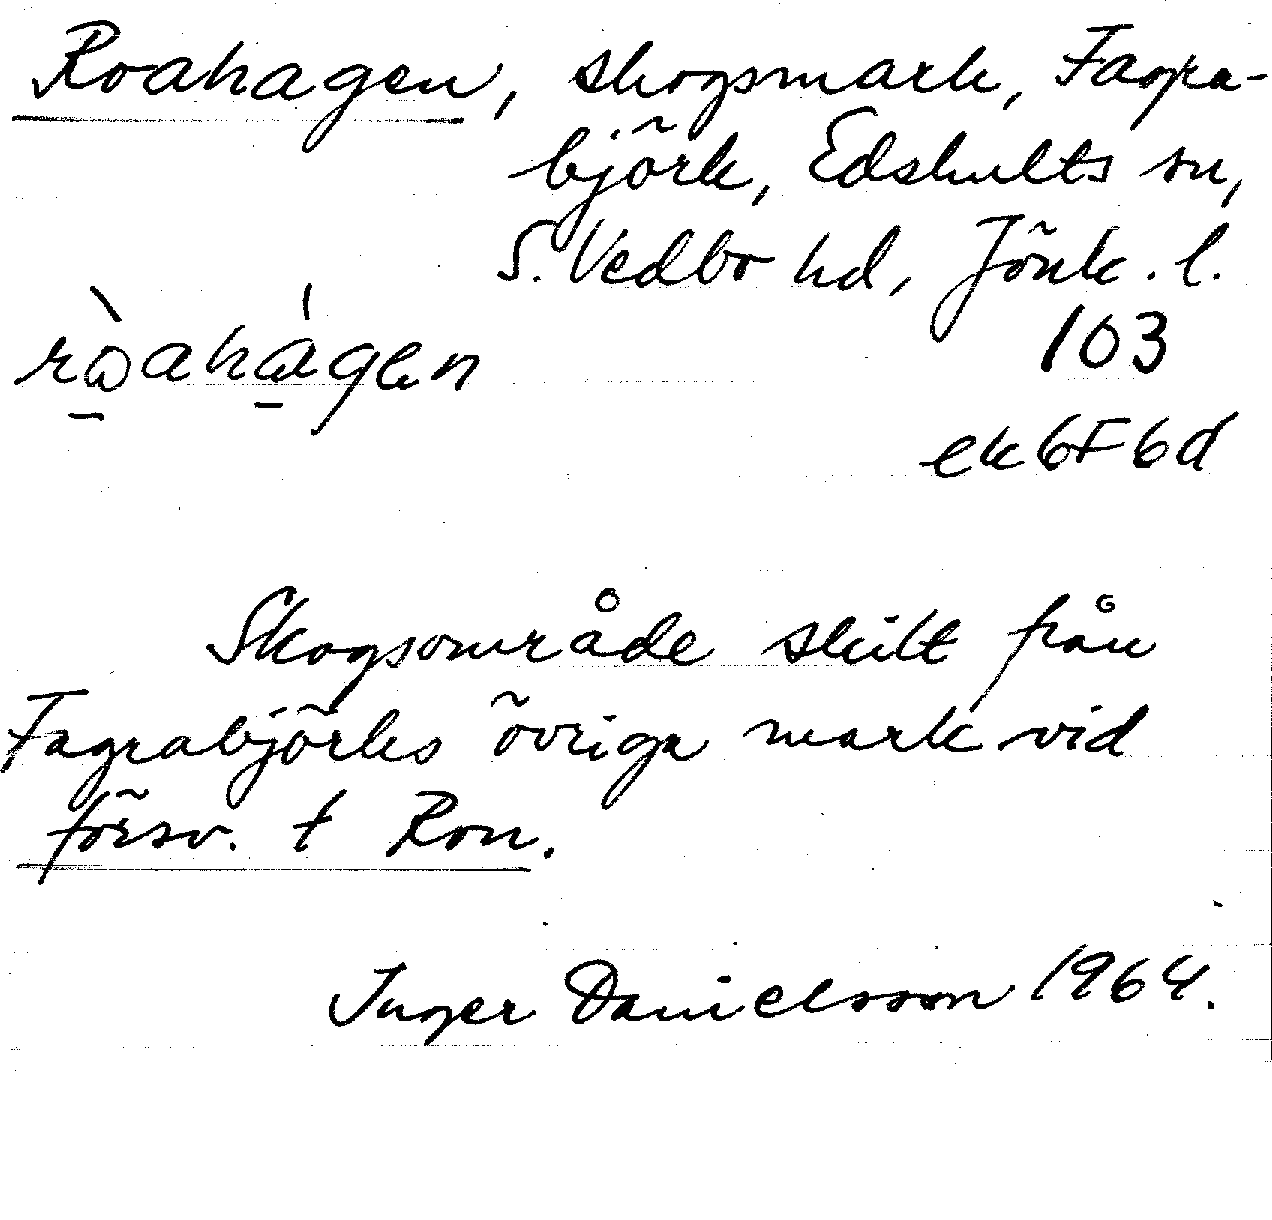 Roahagen, skogsmark, Fagra-
björk, Edshults sn,
S. Vedbo hd, Jönk. l.
103
ek 6F6d
Skogsområde skilt från
Fagrabjörks övriga mark vid
försv. t Ron.
Inger Danielsson 1964.